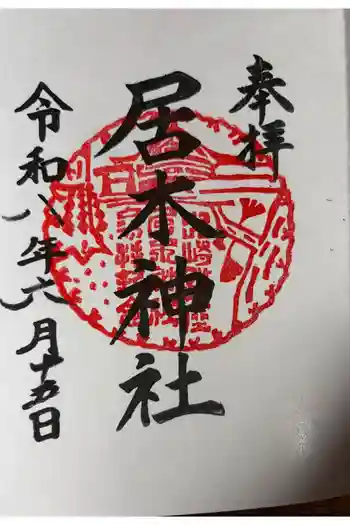 奉拝
居木神社
令和八年六月十五日